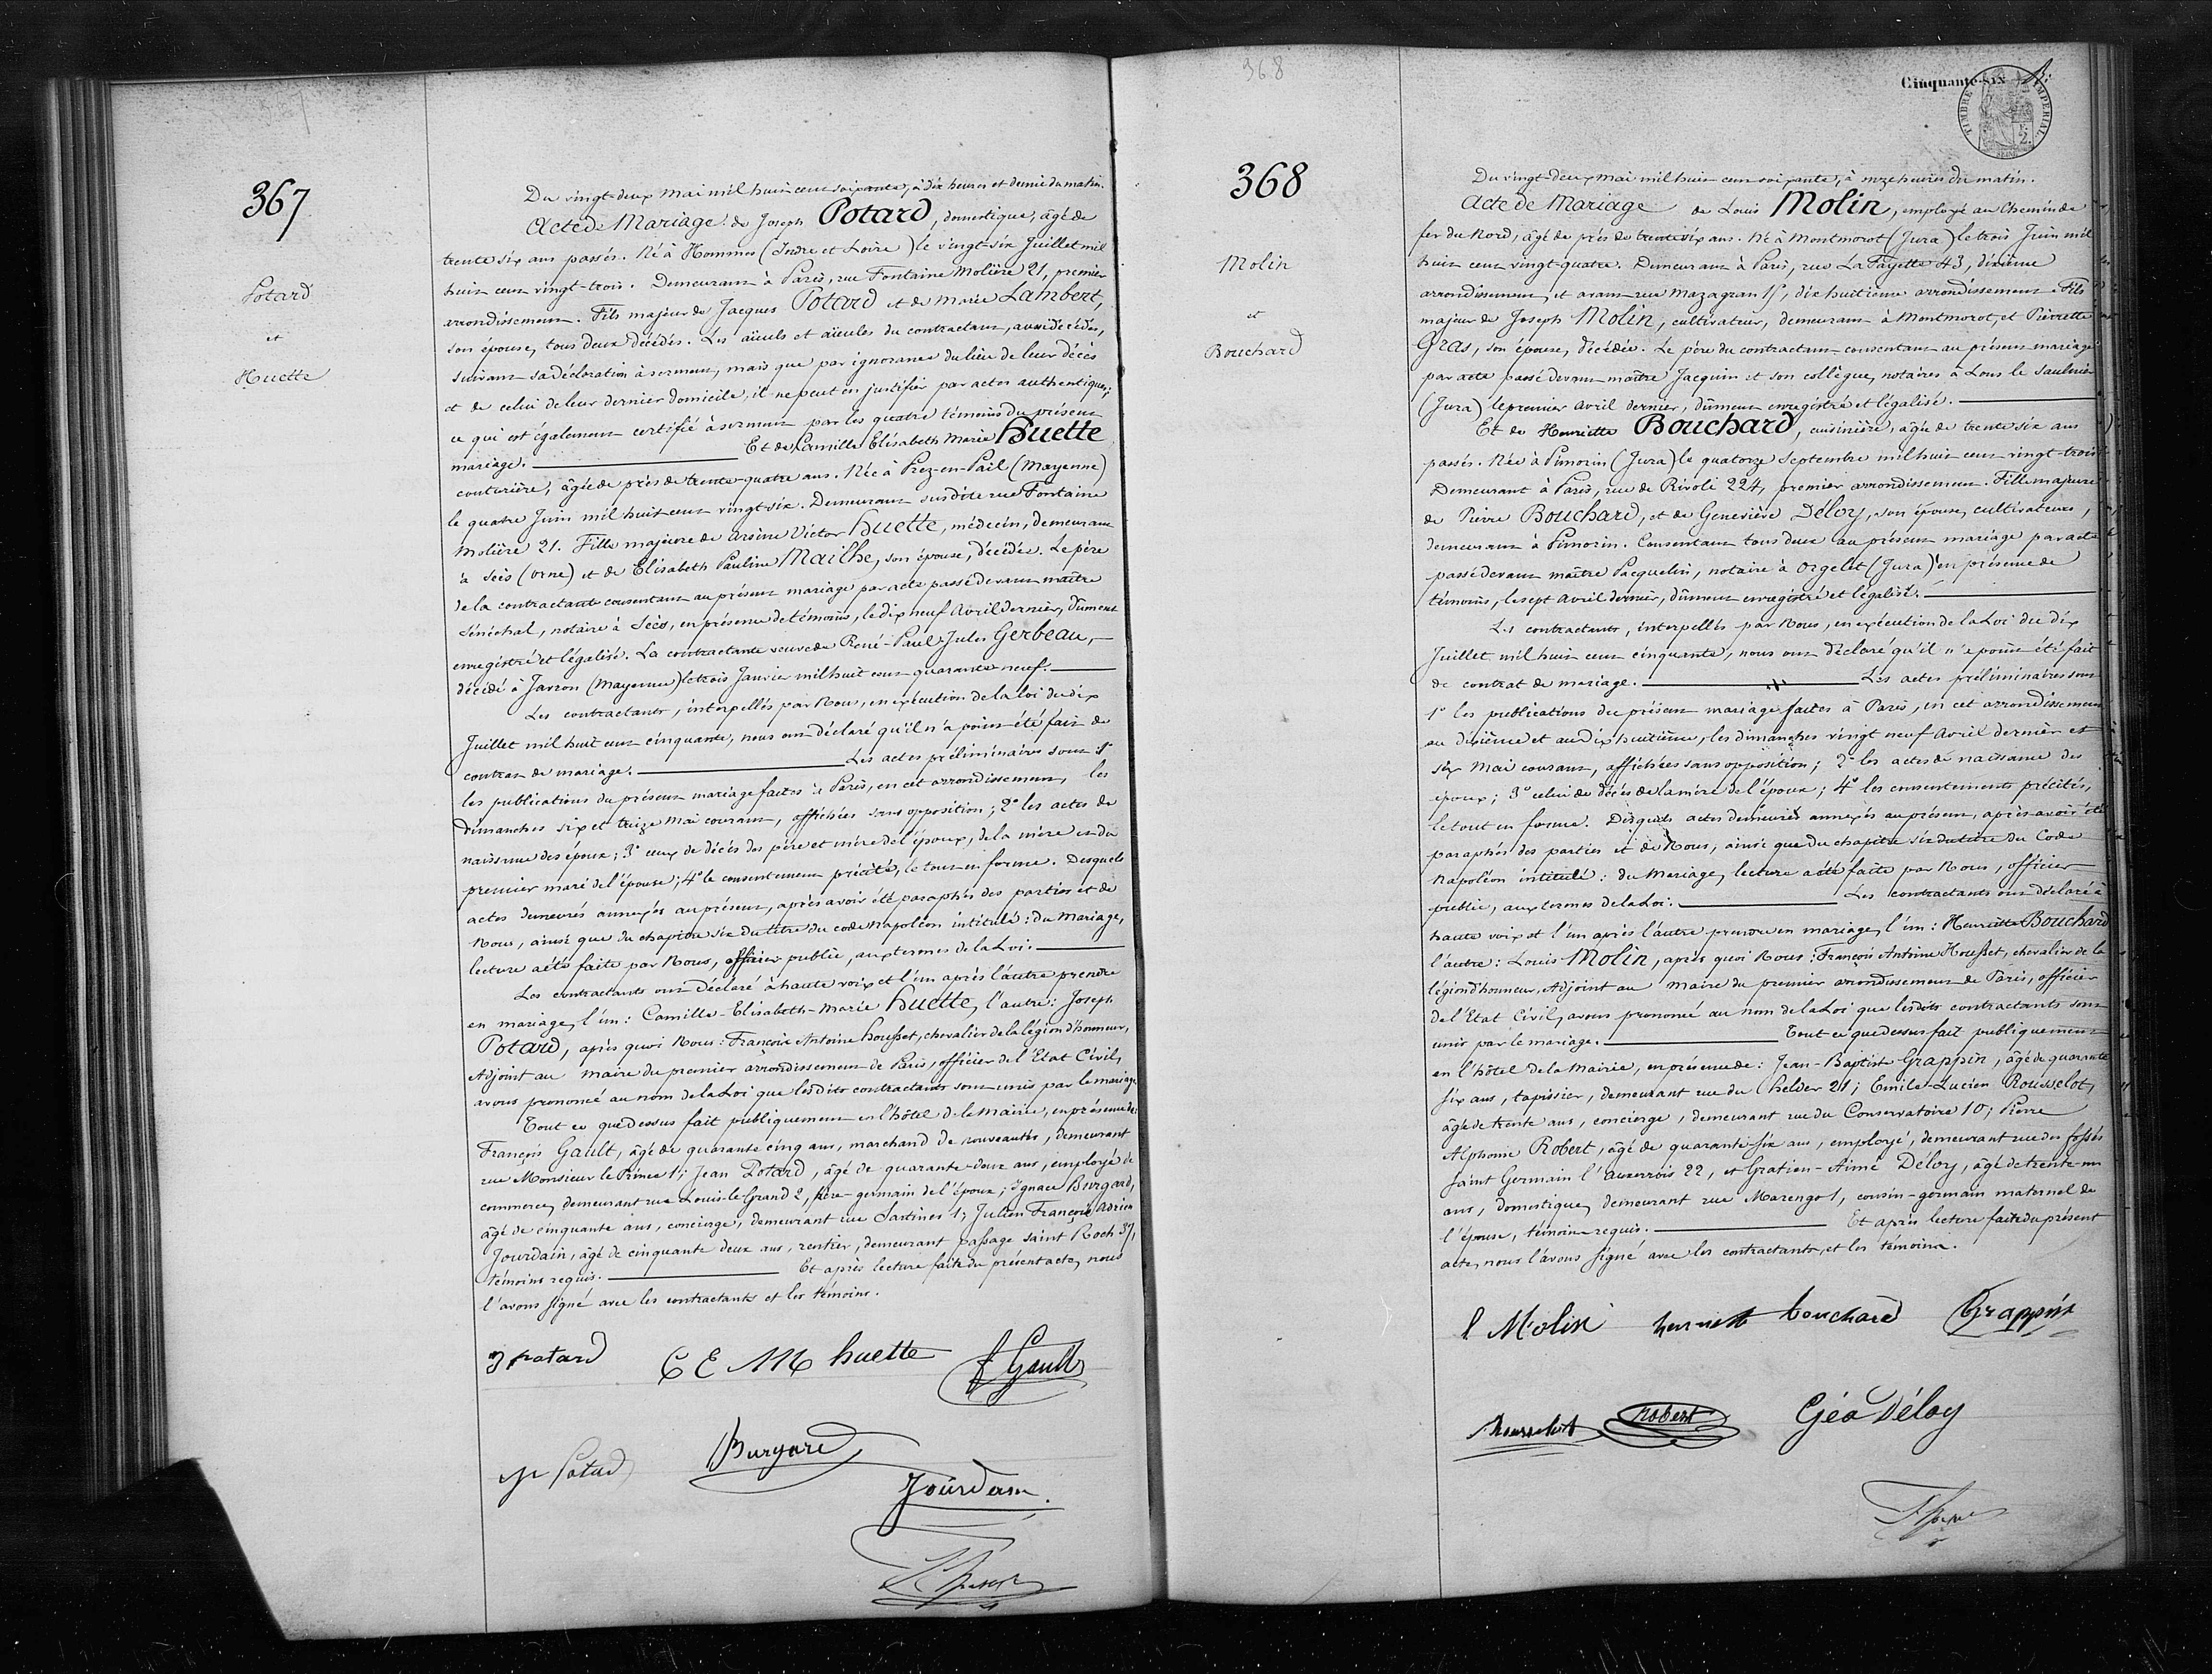 367
Potard
et
Huette
Du vingt-deux mai mil huit cent soixante, à dix heures et demie du matin.
Acte de Mariage de Joseph Potard, domestique, âgé de
trente six ans passés. Né à Hommes (Indre et Loire) le vingt-six Juillet mil
huit cent vingt-trois. Demeurant à Paris, rue Fontaine Molière 21, premier
arrondissement. Fils majeur de Jacques Potard et de Marie Lambert,
son épouse, tous deux décédés. Les aïeuls et aïeules du contractant, aussi décédés,
suivant sa déclaration à serment, mais que par ignorance du lieu de leur décès
et de celui de leur dernier domicile, il ne peut en justifier par actes authentiques;
ce qui est également certifié à serment par les quatre témoins du présent
mariage. Et de Camille Elisabeth Marie Huette
couturière, âgée de près de trente-quatre ans. Née à Prez-en-Pail (Mayenne)
le quatre Juin mil huit cent vingt six. Demeurant susdite rue Fontaine
Molière 21. Fille majeure de Arsène Victor Huette, médecin, demeurant
à Séés (Orne) et de Elisabeth Pauline Mailhe, son épouse, décédée. Le père
de la contractante consentant au présent mariage par acte passé devant maître
Sénéchal, notaire à Séés, en présence de témoins, le dix neuf Avril dernier, dûment
enregistré et légalisé. La contractante veuve de René-Paul Jules Gerbeau,
décédé à Javron (Mayenne) le trois Janvier mil huit cent quarante neuf.
Les contractants, interpellés par Nous, en exécution de la loi du dix
Juillet mil huit cent cinquante, nous ont déclaré qu'il n'a point été fait de
contrat de mariage. Les actes préliminaires sont 1°
les publications du présent mariage faites à Paris, en cet arrondissement, les
dimanches six et treize Mai courant, affichées sans opposition; 2° les actes de
naissance des époux; 3° ceux de décès des père et mère de l'époux, de la mère et du
premier mari de l'épouse; 4° le consentement précité, le tout en forme. Desquels
actes demeurés annexés au présent, après avoir été paraphés des parties et de
Nous, ainsi que du chapitre six du titre du code Napoléon intitulé: du Mariage,
lecture a été faite par Nous, officier public, aux termes de la Loi.
Les contractants ont déclaré à haute voix et l'un après l'autre prendre
en mariage, l'un: Camille-Elisabeth-Marie Huette, l'autre: Joseph
Potard, après quoi Nous: François Antoine Housset, chevalier de la légion d'honneur,
Adjoint au maire du premier arrondissement de Paris, officier de l'Etat Civil,
avons prononcé au nom de la Loi que lesdits contractants sont unis par le mariage.
Tout ce que dessus fait publiquement en l'hôtel de la Mairie, en présence de:
François Gault, âgé de quarante cinq ans, marchand de nouveautés, demeurant
rue Monsieur le Prince 1; Jean Potard, âgé de quarante-deux ans, employé de
commerce, demeurant rue Louis-le-Grand 2, frère-germain de l'époux; Ignace Burgard,
âgé de cinquante ans, concierge, demeurant rue Sartines 1; Julien François Adrien
Jourdain, âgé de cinquante deux ans, rentier, demeurant passage saint Roch 37,
témoins requis. Et après lecture faite du présent acte, nous
l'avons signé avec les contractants et les témoins.
J potard C E M huette f Gault
Potard Burgard
Jourdain
368
368
Molin
et
Bouchard
Cinquante-six
TIMBRE IMPERIAL
Du vingt-deux mai mil huit cent soixante, à onze heures du matin.
Acte de Mariage de Louis Molin, employé au Chemin de
fer du Nord, âgé de près de trente six ans. Né à Montmorot (Jura) le trois Juin mil
huit cent vingt-quatre. Demeurant à Paris, rue La Fayette 43, dixième
arrondissement, et avant rue Mazagran 15, dix huitième arrondissement. Fils
majeur de Joseph Molin, cultivateur, demeurant à Montmorot, et Pierrette
Gras, son épouse, décédée. Le père du contractant consentant au présent mariage
par acte passé devant maître Jacquin et son collègue, notaires à Lons le Saulnier
(Jura) le premier avril dernier, dûment enregistré et légalisé.
Et de Henriette Bouchard, cuisinière, âgée de trente six ans
passés. Née à Pimorin (Jura) le quatorze Septembre mil huit cent vingt-trois
Demeurant à Paris, rue de Rivoli 224, premier arrondissement. Fille majeure
de Pierre Bouchard, et de Geneviève Déloy, son épouse, cultivateurs,
demeurant à Pimorin. Consentant tous deux au présent mariage par acte
passé devant maître Pacquelin, notaire à Orgelet (Jura) en présence de
témoins, le sept Avril dernier, dûment enregistré et légalisé.
Les contractants, interpellés par Nous, en exécution de la Loi du dix
Juillet mil huit cent cinquante, nous ont déclaré qu'il n'a point été fait
de contrat de mariage. Les actes préliminaires sont
1° les publications du présent mariage faites à Paris, en cet arrondissement
au dixième et au dix huitième, les dimanches vingt neuf Avril dernier et
six Mai courant, affichées sans opposition; 2° les actes de naissance des
époux; 3° celui de décès de la mère de l'époux; 4° les consentements précités,
le tout en forme. Desquels actes demeurés annexés au présent, après avoir été
paraphés des parties et de Nous, ainsi que du chapitre six du titre du Code
Napoléon intitulé: du Mariage, lecture a été faite par Nous, officier
public, aux termes de la Loi. Les contractants ont déclaré à
haute voix et l'un après l'autre prendre en mariage, l'un: Henriette Bouchard
l'autre: Louis Molin, après quoi Nous: François Antoine Housset, chevalier de la
légion d'honneur, Adjoint au maire du premier arrondissement de Paris, officier
de l'Etat Civil, avons prononcé au nom de la Loi que lesdits contractants sont
unis par le mariage. Tout ce que dessus fait publiquement
en l'hôtel de la Mairie, en présence de: Jean-Baptiste Grappin, âgé de quarante
six ans, tapissier, demeurant rue du Helder 21; Emile-Lucien Rousselot,
âgé de trente ans, concierge, demeurant rue du Conservatoire 10; Pierre
Alphonse Robert, âgé de quarante-six ans, employé, demeurant rue des fossés
saint Germain l'auxerrois 22, et Gratien-Aimé Déloy, âgé de trente-un
ans, domestique, demeurant rue Marengo 1, cousin-germain maternel de
l'épouse, témoins requis. Et après lecture faite du présent
acte, nous l'avons signé avec les contractants, et les témoins.
l Molin henriette bouchard Grappin
Rousselot Robert Géa Déloy